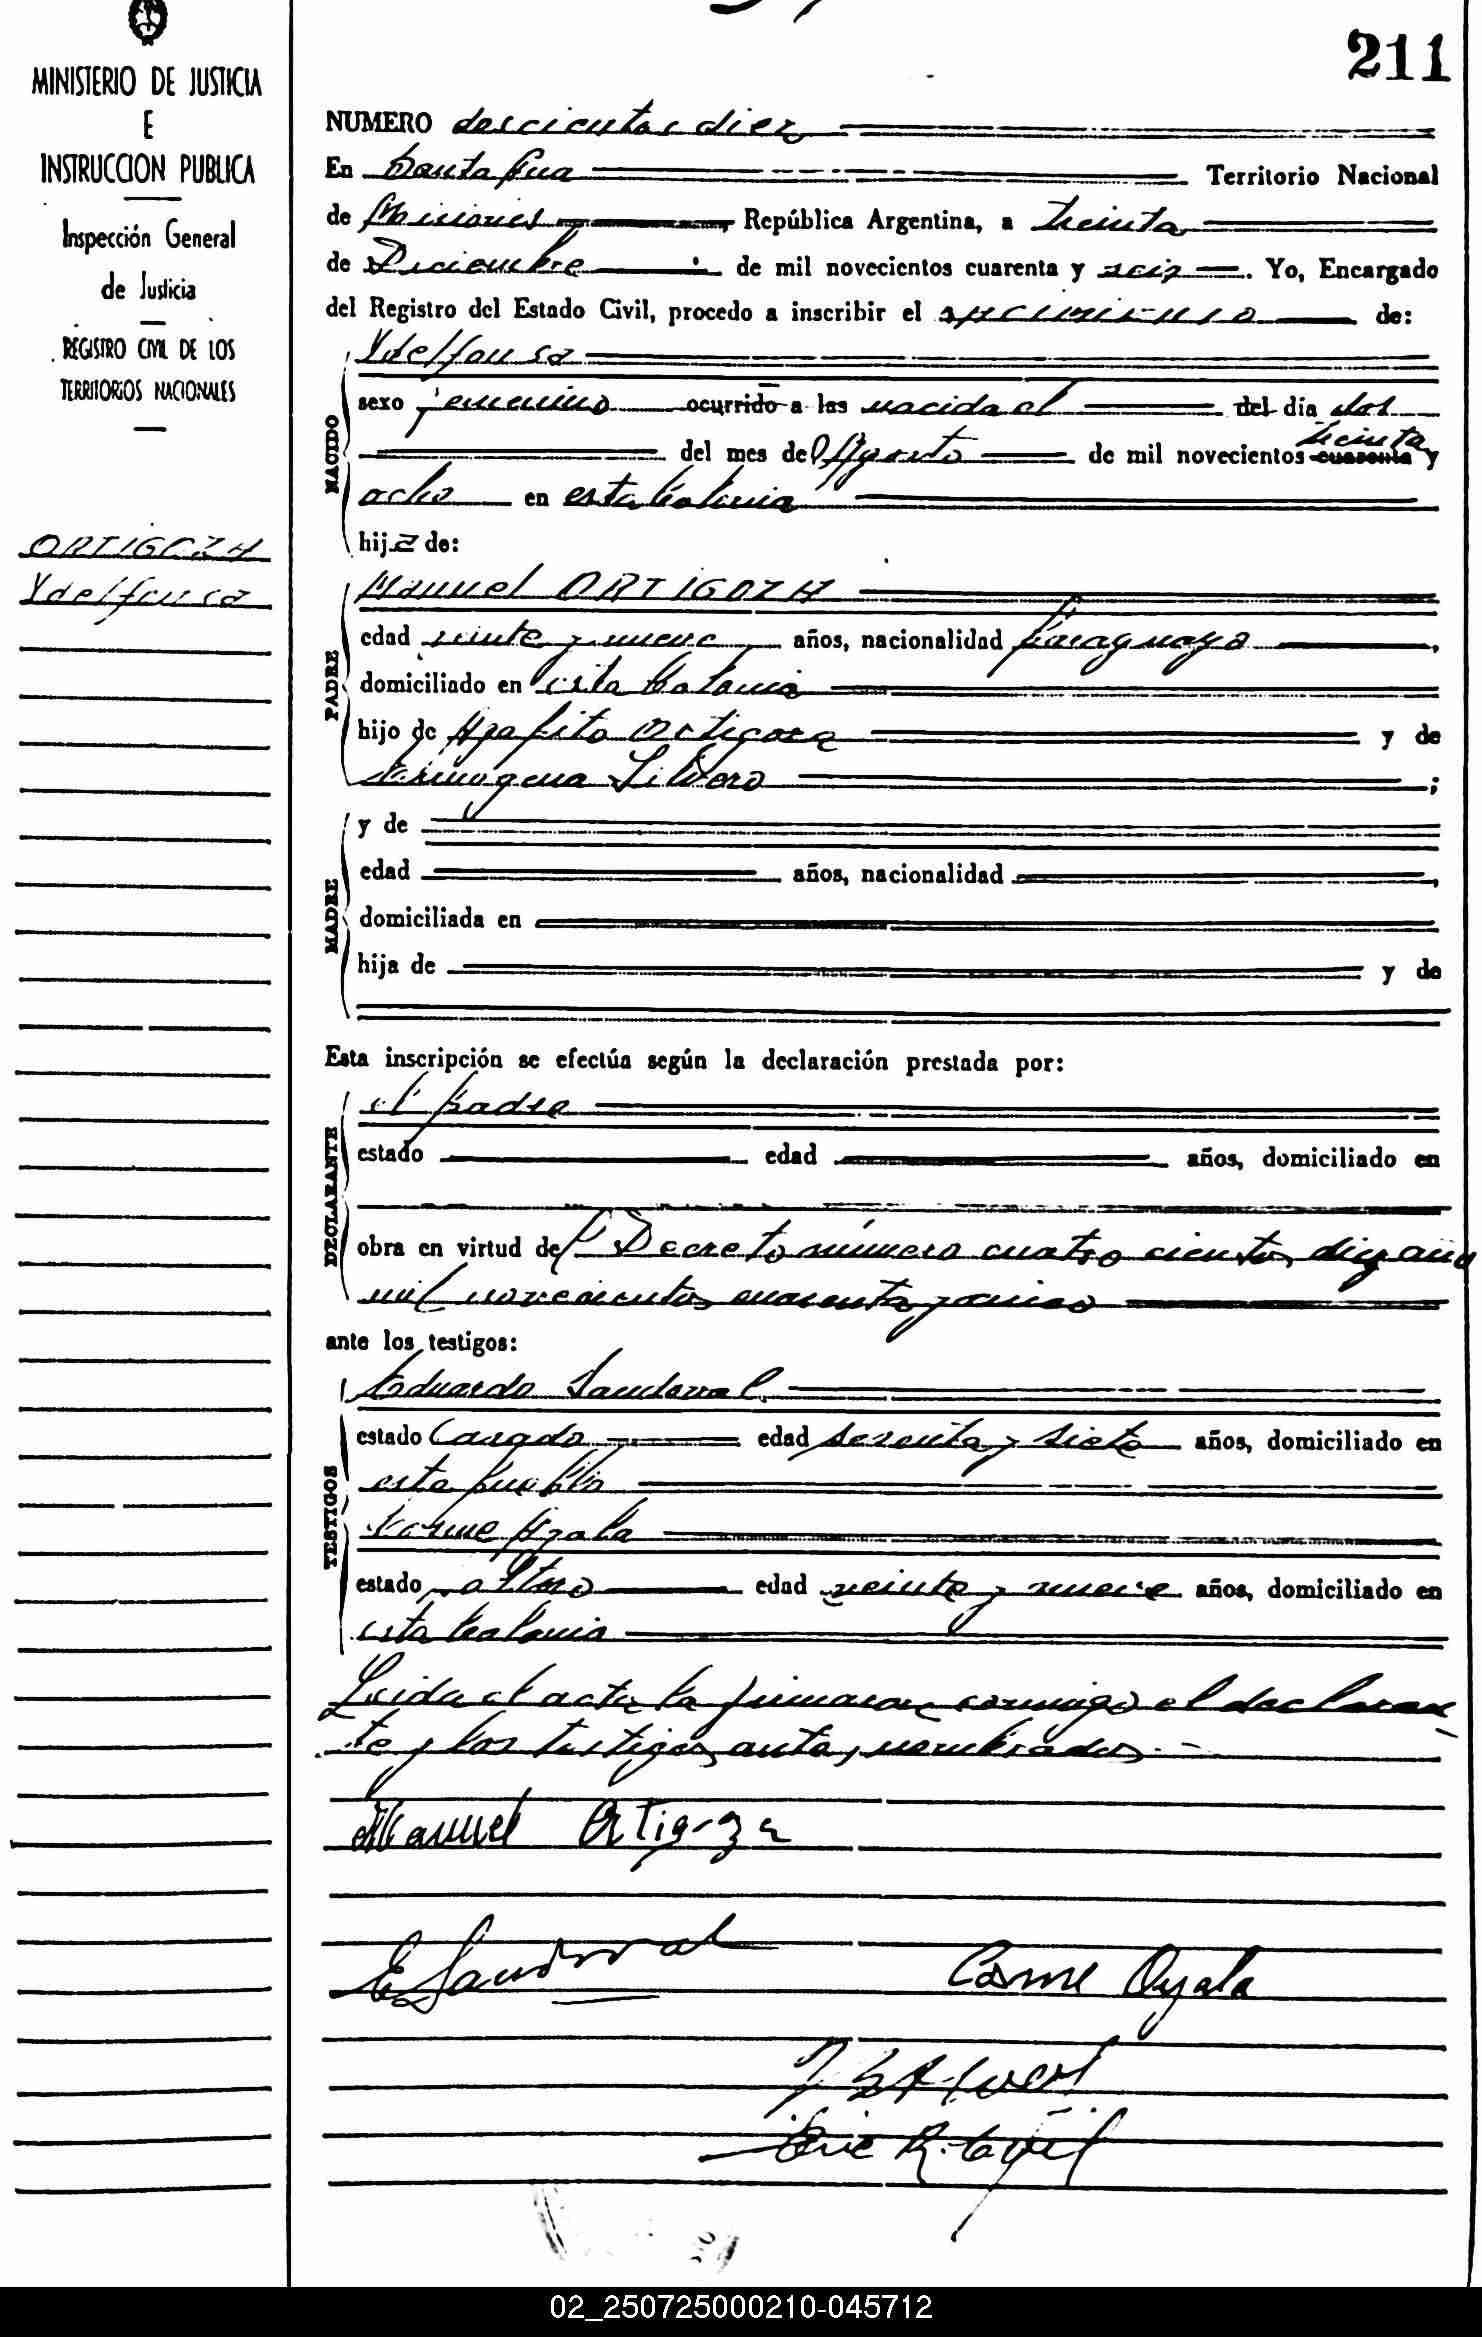 211
MINISTERIO DE JUSTICIA
E
INSTRUCCION PUBLICA
Inspección General
de Justicia
REGISTRO CIVIL DE LOS
TERRITORIOS NACIONALES
ORTIGOZA
Ydelfonsa
NUMERO doscientos diez
En Santa Ana Territorio Nacional
de Misiones, República Argentina, a treinta
de Diciembre de mil novecientos cuarenta y seis. Yo, Encargado
del Registro del Estado Civil, procedo a inscribir el nacimiento de:
NACIDO
Ydelfonsa
sexo femenino ocurrido a las nacida el del día dos
treinta
del mes de Agosto de mil novecientos cuarenta y
ocho en esta Colonia
hija de:
PADRE
Manuel ORTIGOZA
edad veinte y nueve años, nacionalidad Paraguaya,
domiciliado en esta Colonia
hijo de Agapito Ortigoza y de
Hermogena ;
MADRE
y de
edad años, nacionalidad ,
domiciliada en
hija de y de
Esta inscripción se efectúa según la declaración prestada por:
DECLARANTE
el padre
estado edad años, domiciliado en
obra en virtud del Decreto número cuatro cientos diez año
mil novecientos cuarenta y cinco
ante los testigos:
TESTIGOS
Eduardo Sandoval
estado Casado edad sesenta y siete años, domiciliado en
este pueblo
Cosme Ayala
estado soltero edad veinte y nueve años, domiciliado en
esta Colonia
Leida el acta la firmaron conmigo el declaran
te y los testigos antes nombrados.
Manuel Ortigoza
E Sandoval
Cosme Ayala
02_250725000210-045712